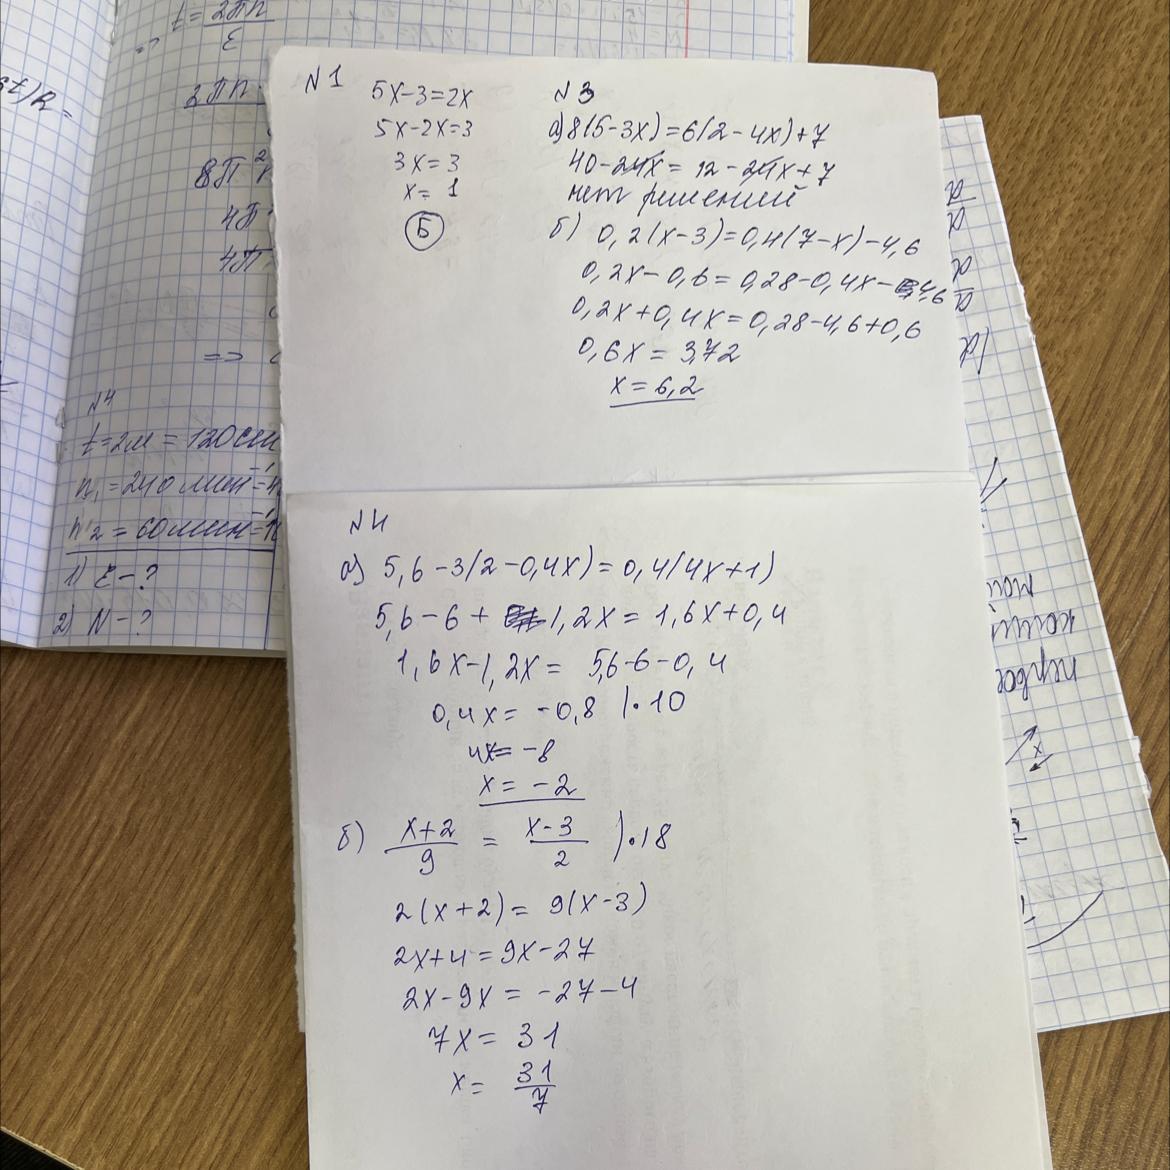 t = 2πn
ε
2πn
8π²
4π
4π
=>
N4
t=2м = 120сек
n₁ = 240 мин⁻¹
n₂ = 60мин⁻¹
1) ε - ?
2) N - ?
N1
5x-3=2x
5x-2x=3
3x=3
x= 1
Б
N3
а) 8(5-3x)=6(2-4x)+7
40-24x= 12-24x+7
нет решений
б) 0,2(x-3)=0,4(7-x)-4,6
0,2x-0,6=0,28-0,4x-4,6
0,2x+0,4x=0,28-4,6+0,6
0,6x = 3,72
x=6,2
N4
а) 5,6-3(2-0,4x)=0,4(4x+1)
5,6-6+ 1,2x= 1,6x+0,4
1,6x-1,2x= 5,6-6-0,4
0,4x= -0,8 |·10
4x= -8
x= -2
б) x+2/9 = x-3/2 |·18
2(x+2)= 9(x-3)
2x+4=9x-27
2x-9x= -27-4
7x= 31
x= 31/7
первое
x